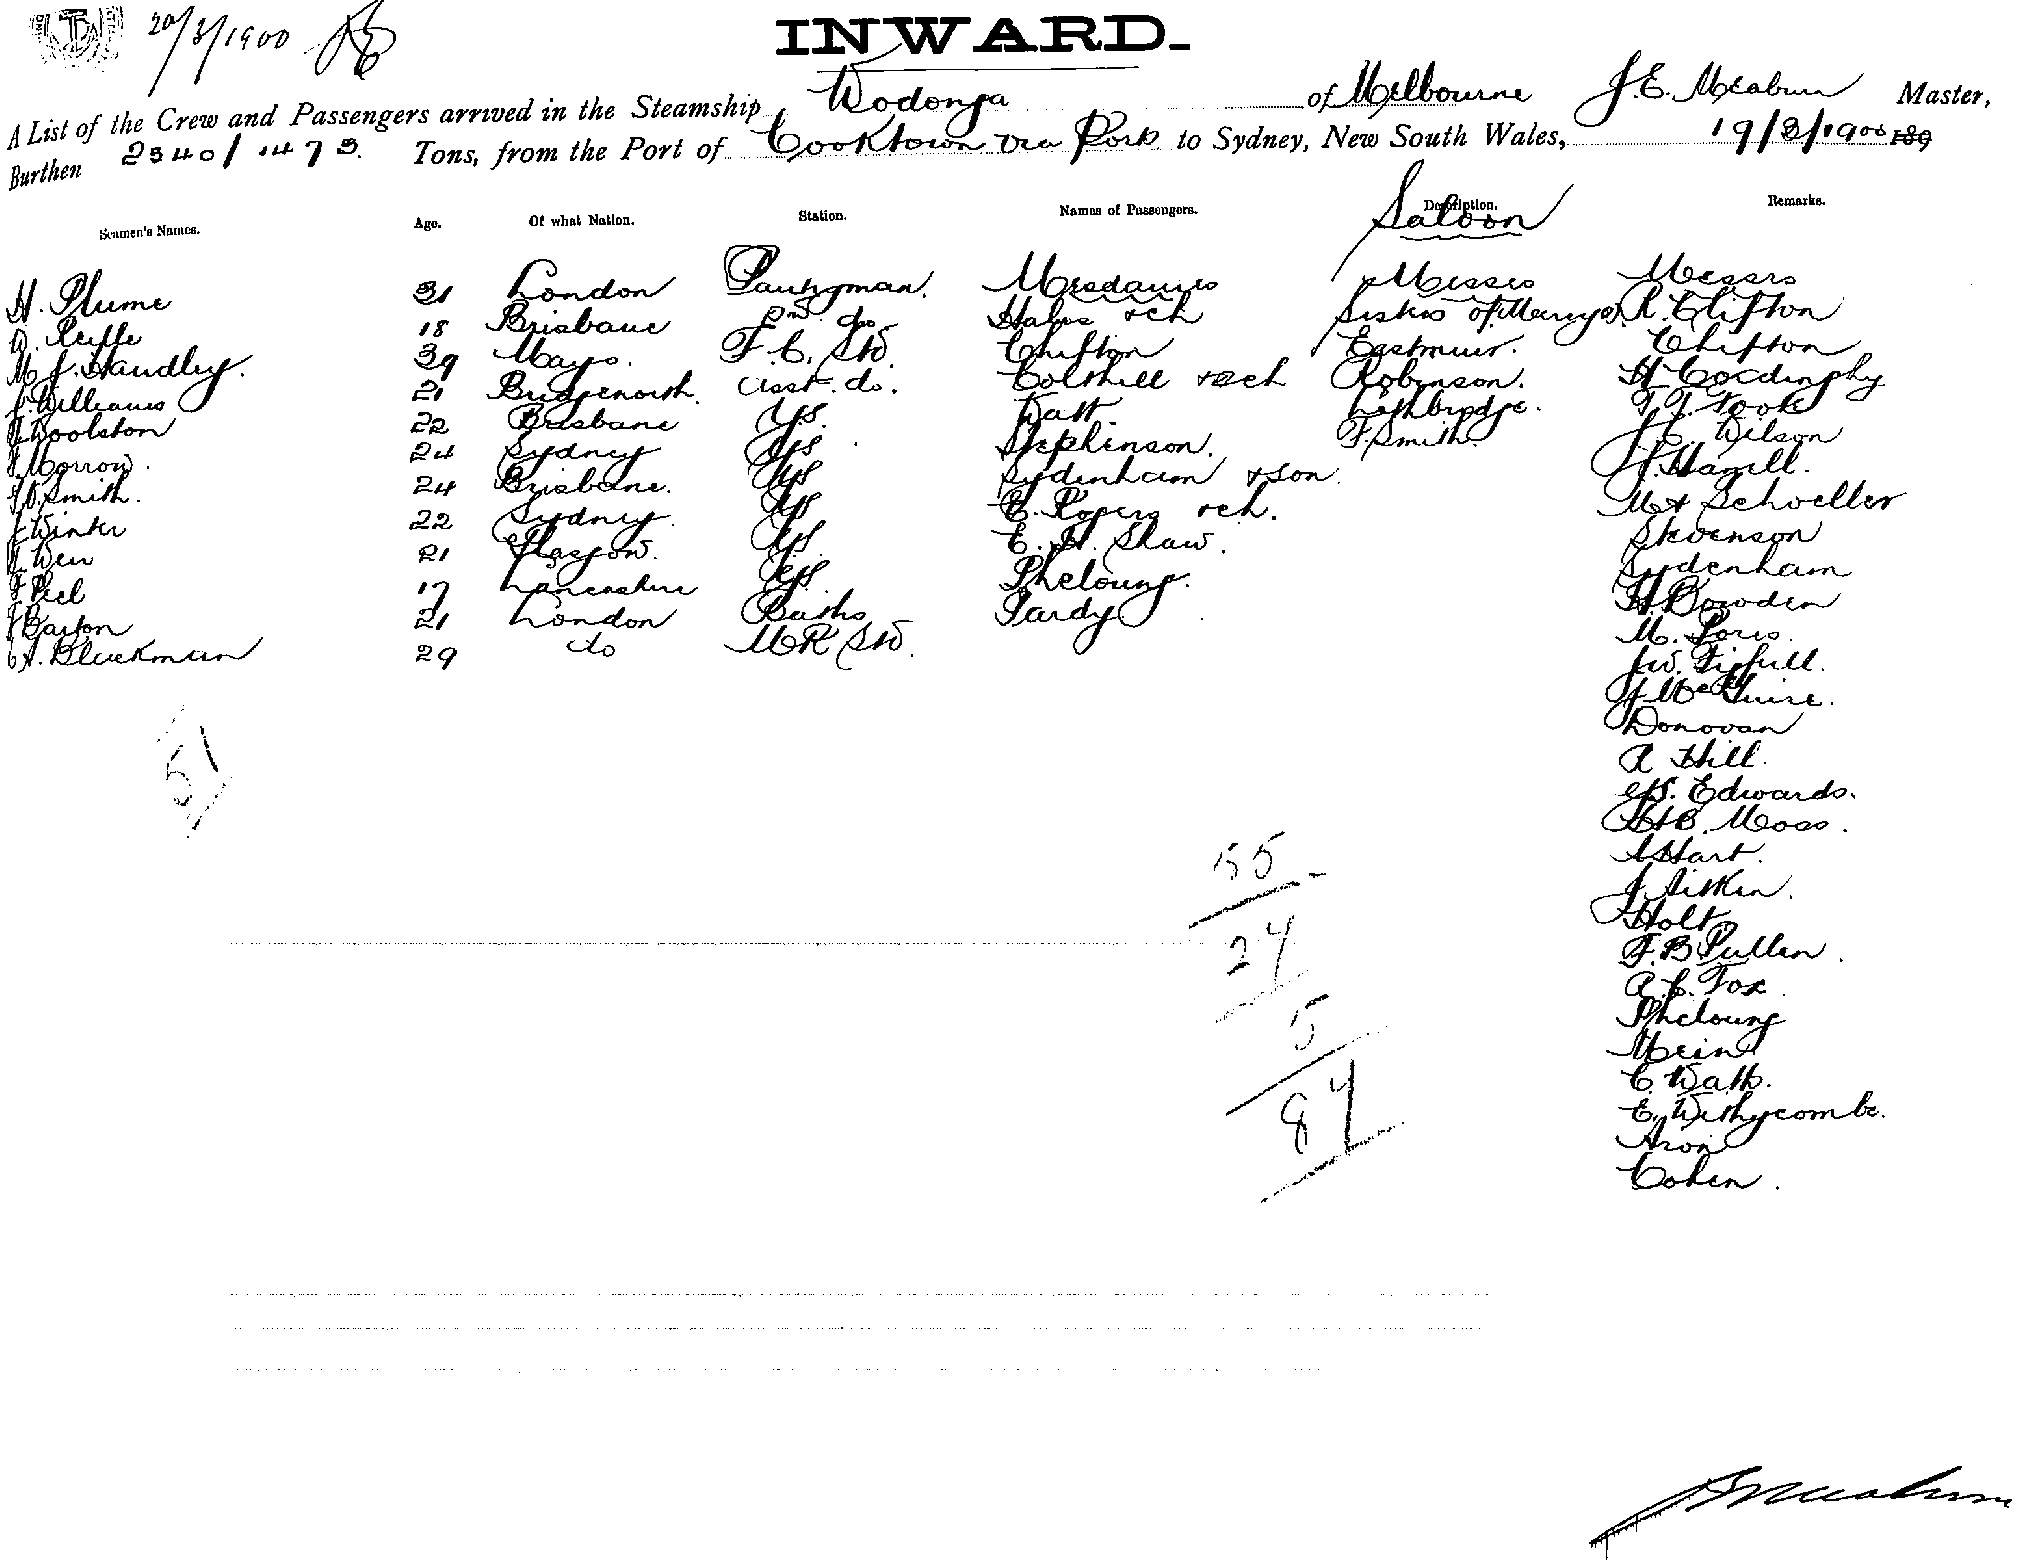 20/3/1900
INWARD.
A List of the Crew and Passengers arrived in the Steamship Wodonga of Melbourne J. E. Meaburn Master,
Burthen 2340/1473 Tons, from the Port of Cooktown via Ports to Sydney, New South Wales, 19/3/1900 189
Seamen's Names. Age. Of what Nation. Station. Names of Passengers. Description. Remarks.
Saloon
H. Plume 31 London Pantryman. Mesdames Misses Messrs
18 Brisbane do Hales + ch Sisters of Mercy R. Clifton
M J. Handley. 39 Mayo. F. C. Std. Clifton Eastmuir. Clifton
J. Williams 21 Bridgenorth. asst. do. Colthill + ch Robinson. H
Woolston 22 Brisbane G/S. Watt. Lethbridge. Took
Morrow. 24 Sydney G/S Stephenson. F. Smith. Wilson
Smith. 24 Brisbane. G/S Sydenham + son. J. Hamill.
J Winter 22 Sydney. G/S E. Rogers + ch. Schoeller
Weir 21 Glasgow. G/S. E. H. Shaw. Stevenson
F Peel 17 Lancashire G/S. Pheloung. Sydenham
Barton 21 London Baths Pardy H. Bowden
Bluckman 29 do M R Std. M.
J W.
J McGuire.
Donovan
A Hill.
Edwards.
H B. Moss.
A Hart.
J. Aitken.
Holt
F. B Pullen.
A. C. Fox.
Pheloung
Mein
C. Watt.
E. Withycombe.
Aron
Cohen.
51
55
24
5
84
J E Meaburn